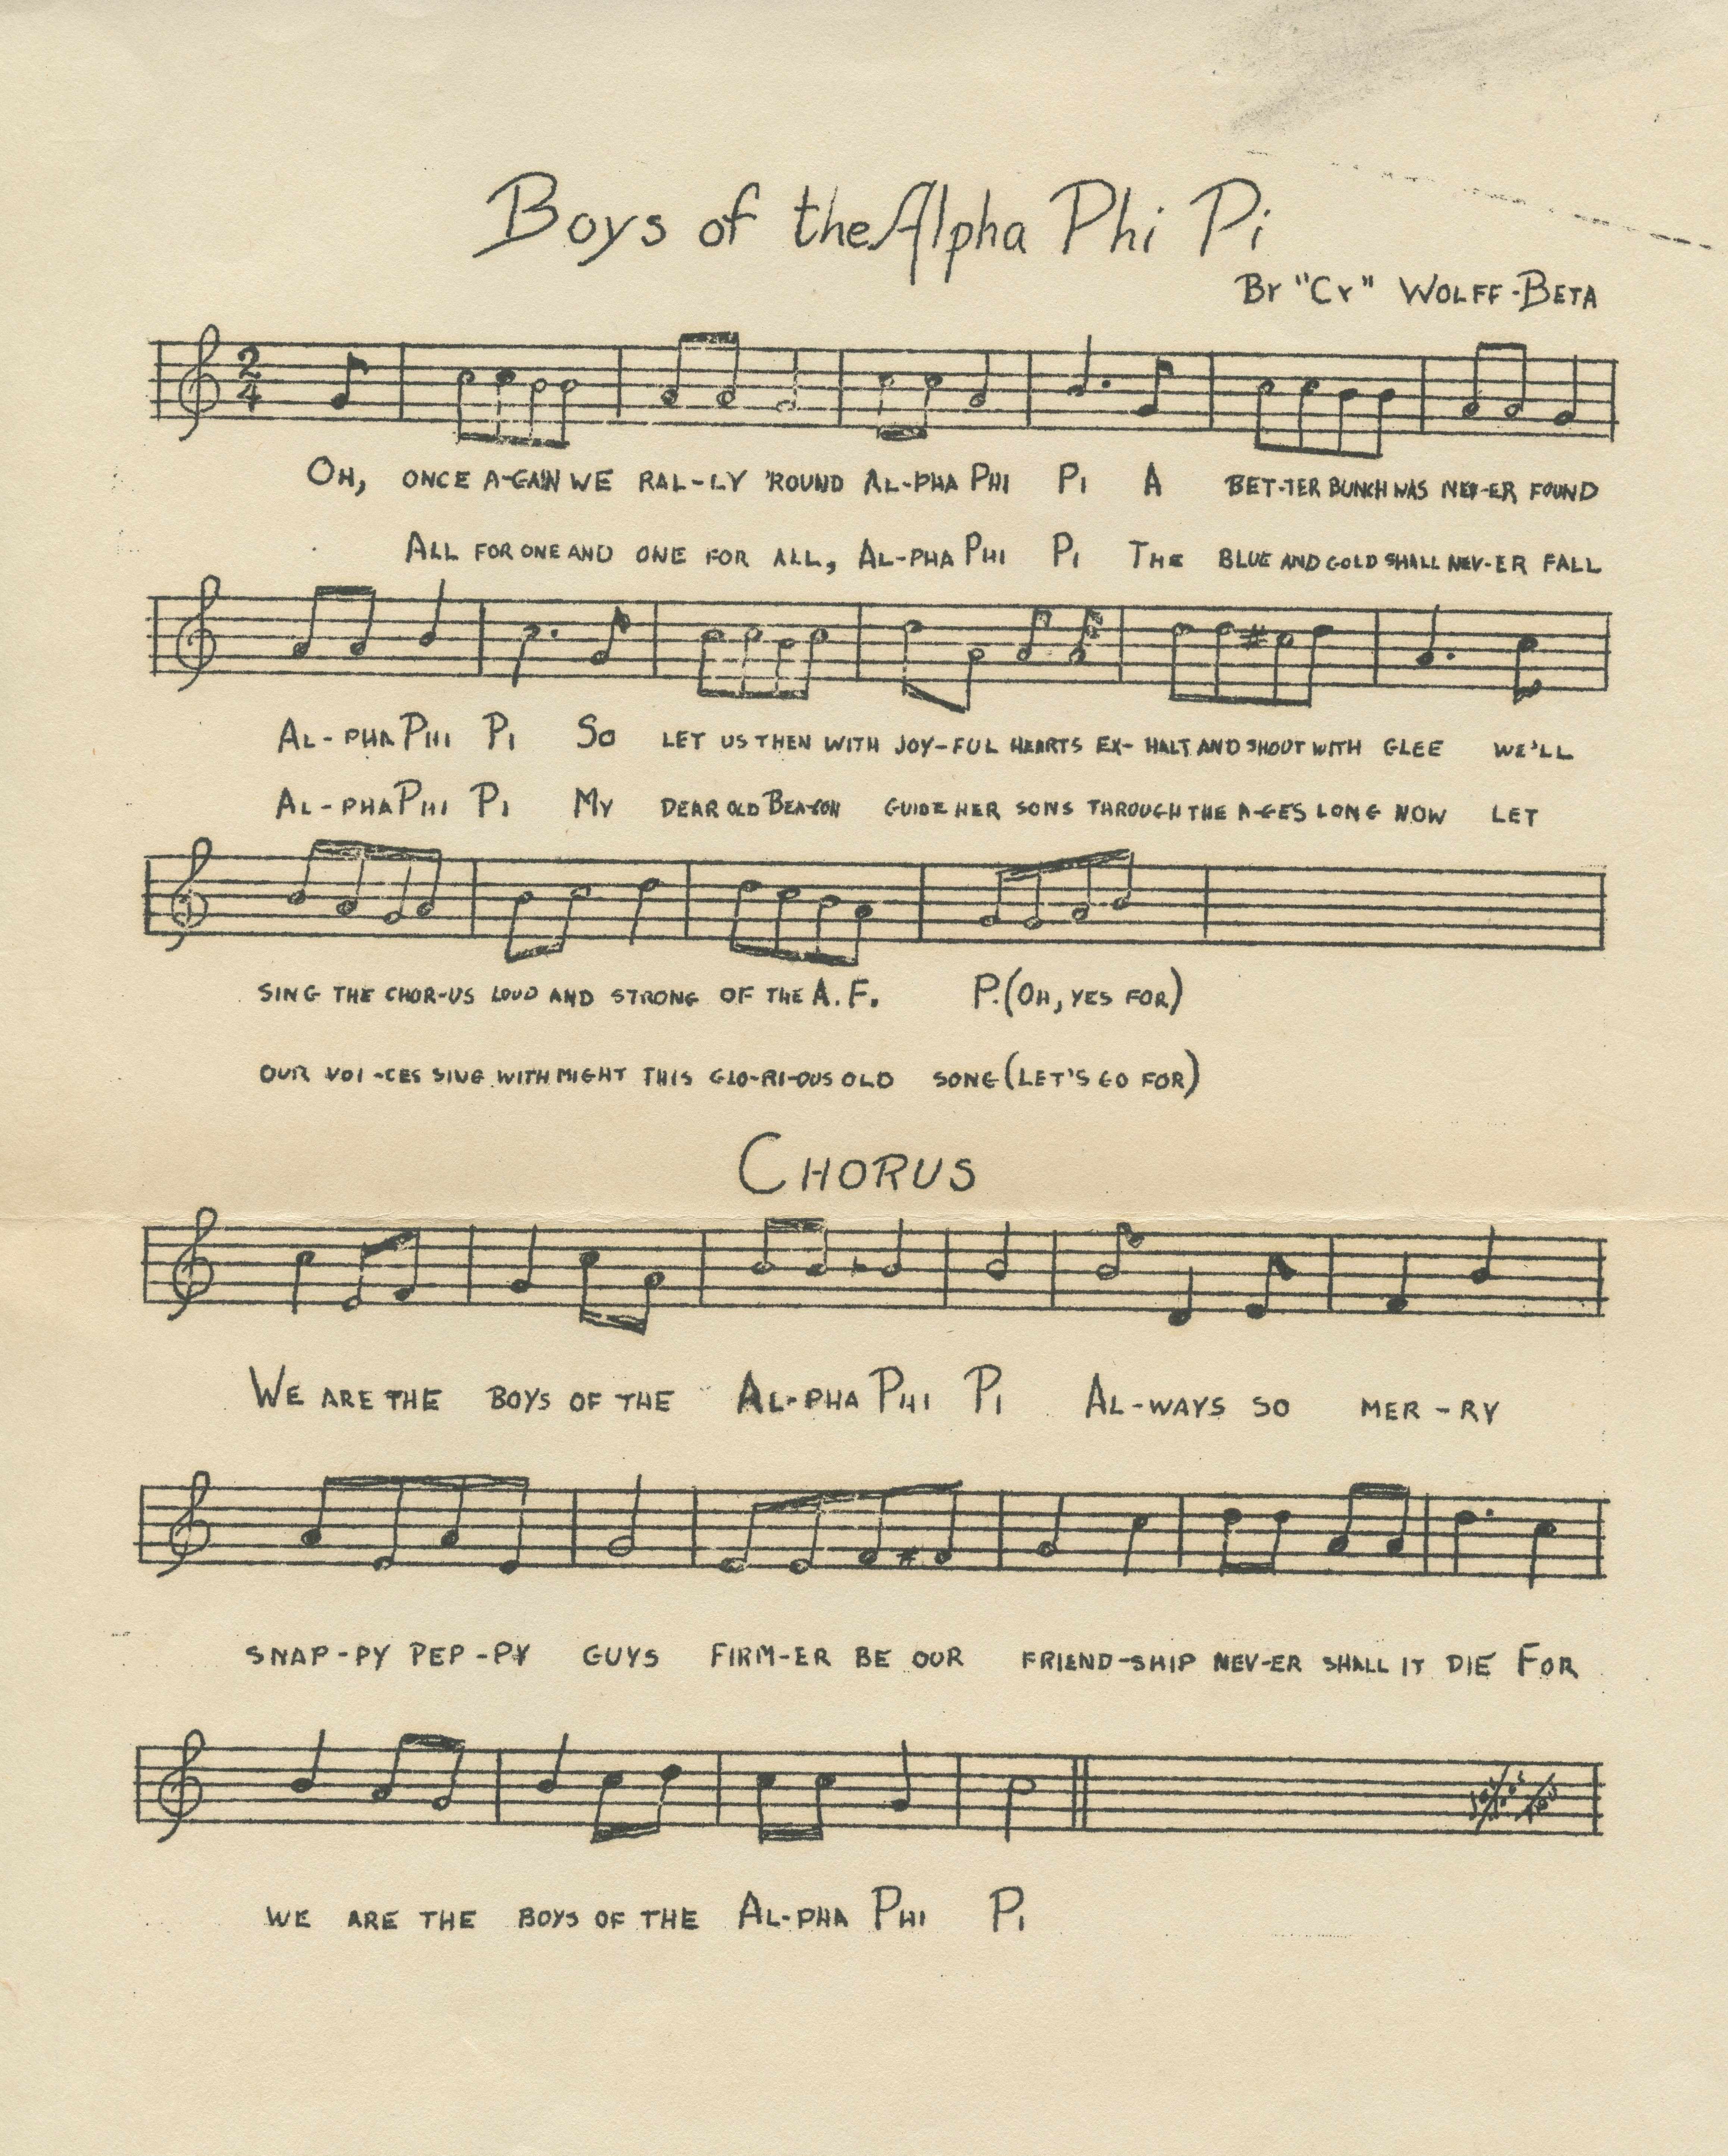 Boys of the Alpha Phi Pi
By "Cy" Wolff-Beta
2
4
Oh, once a-gain we ral-ly 'round Al-pha Phi Pi A bet-ter bunch was nev-er found
All for one and one for all, Al-pha Phi Pi The blue and gold shall nev-er fall
Al-pha Phi Pi So let us then with joy-ful hearts ex-halt and shout with glee we'll
Al-pha Phi Pi My dear old Bea-con guide her sons through the a-ges long now let
sing the chor-us loud and strong of the A. F. P. (Oh, yes for)
our voi-ces sing with might this glo-ri-ous old song (let's go for)
Chorus
We are the boys of the Al-pha Phi Pi Al-ways so mer-ry
snap-py pep-py guys firm-er be our friend-ship nev-er shall it die For
we are the boys of the Al-pha Phi Pi